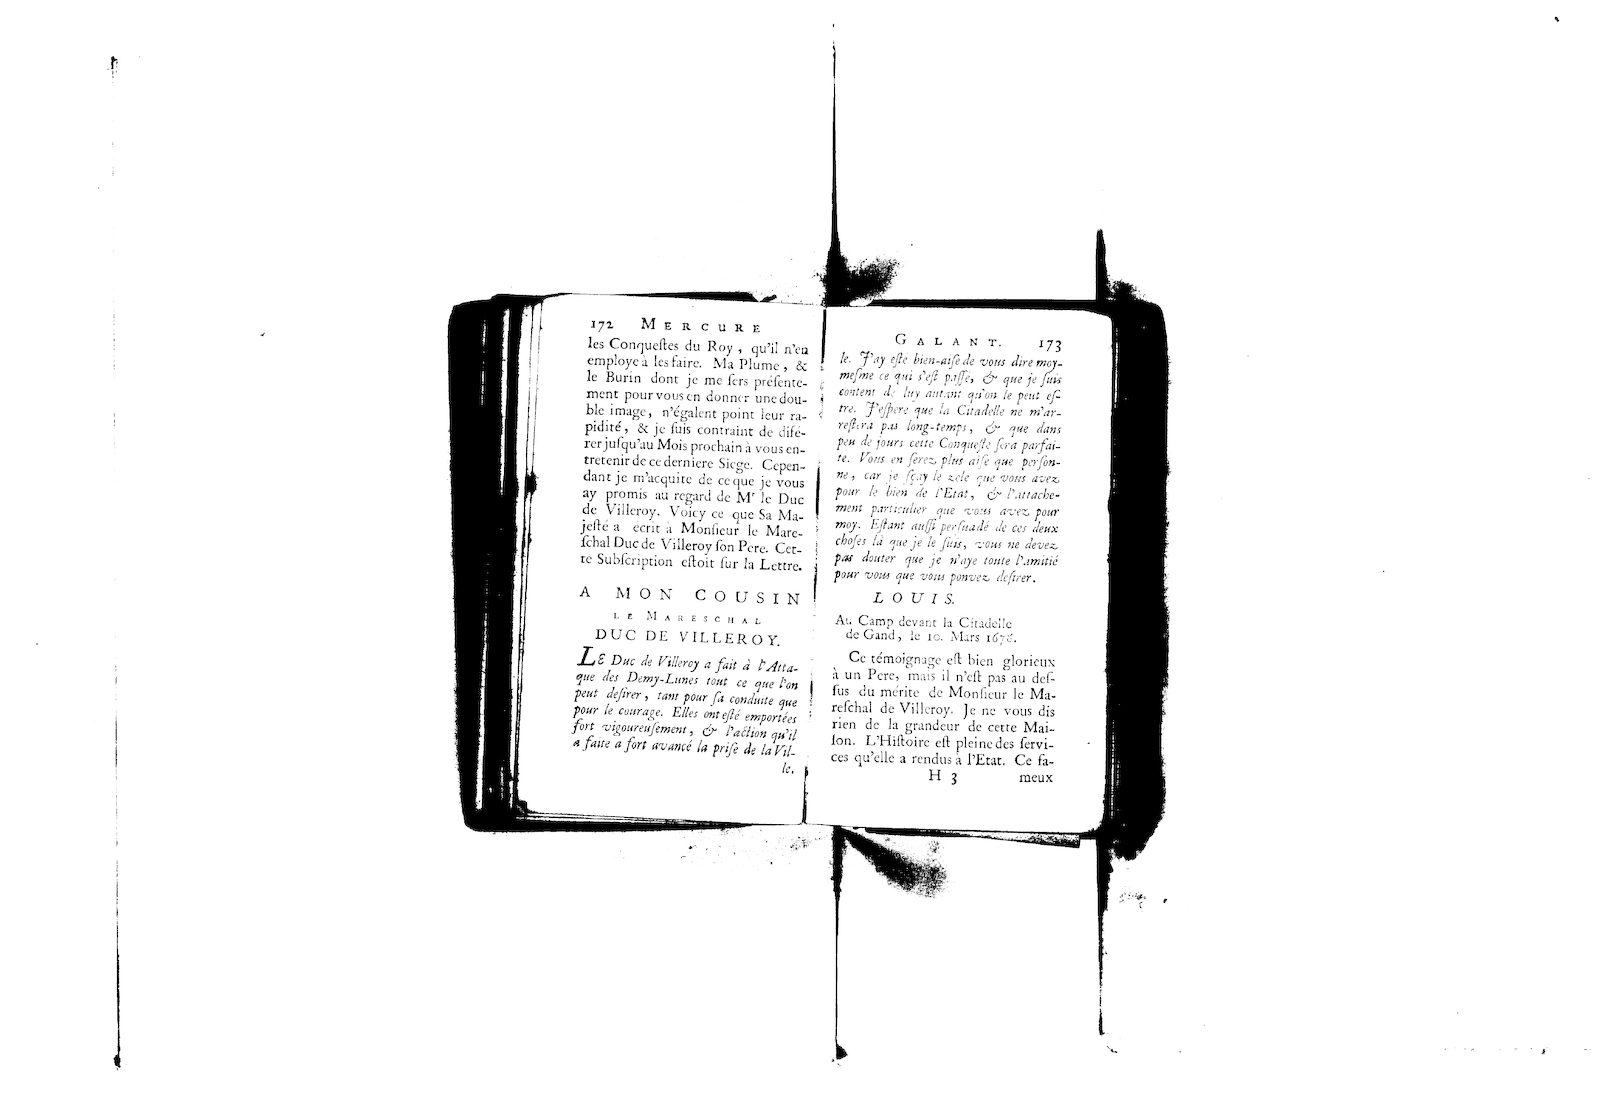 172 MERCURE
les Conqueſtes du Roy, qu'il n'en
employe à les faire. Ma Plume, &
le Burin dont je me ſers préſente-
ment pour vous en donner une dou-
ble image, n'égalent point leur ra-
pidité, & je ſuis contraint de difé-
rer juſqu'au Mois prochain à vous en-
tretenir de ce derniere Siege. Cepen-
dant je m'acquite de ce que je vous
ay promis au regard de Mr le Duc
de Villeroy. Voicy ce que Sa Ma-
jeſté a écrit à Monſieur le Mare-
ſchal Duc de Villeroy ſon Pere. Cet-
te Subſcription eſtoit ſur la Lettre.
A MON COUSIN
LE MARESCHAL
DUC DE VILLEROY.
LE Duc de Villeroy a fait à l'Atta-
que des Demy-Lunes tout ce que l'on
peut deſirer, tant pour ſa conduite que
pour le courage. Elles ont eſté emportées
fort vigoureuſement, & l'action qu'il
a faite a fort avancé la priſe de la Vil-
le.
GALANT. 173
le. J'ay eſté bien-aiſe de vous dire moy-
meſme ce qui s'eſt paſſé, & que je ſuis
content de luy autant qu'on le peut eſ-
tre. J'eſpere que la Citadelle ne m'ar-
reſtera pas long-temps, & que dans
peu de jours cette Conqueſte ſera parfai-
te. Vous en ſerez plus aiſe que perſon-
ne, car je ſçay le zele que vous avez
pour le bien de l'Etat, & l'attache-
ment particulier que vous avez pour
moy. Eſtant auſſi perſuadé de ces deux
choſes là que je le ſuis, vous ne devez
pas douter que je n'aye toute l'amitié
pour vous que vous pouvez deſirer.
LOUIS.
Au Camp devant la Citadelle
de Gand, le 10. Mars 1678.
Ce témoignage eſt bien glorieux
à un Pere, mais il n'eſt pas au deſ-
ſus du mérite de Monſieur le Ma-
reſchal de Villeroy. Je ne vous dis
rien de la grandeur de cette Mai-
ſon. L'Hiſtoire eſt pleine des ſervi-
ces qu'elle a rendus à l'Etat. Ce fa-
H 3 meux